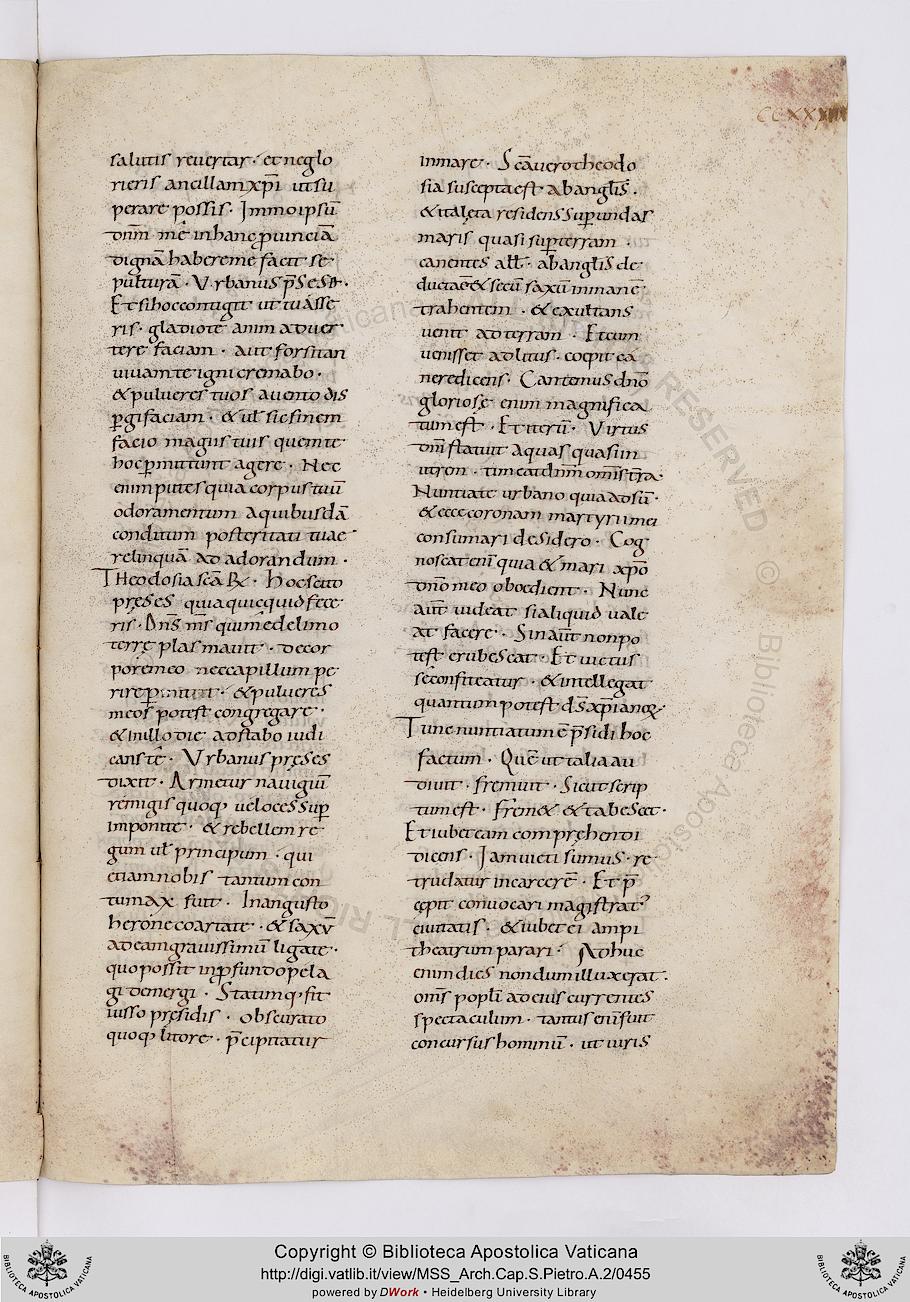 CCXXXIIII
salutis revertar · et neglo
rieris ancillam xp̄i ut su
perare possis · Immo ipsū
dn̄m m̄e in hanc p̱vinciā
dignā habere me facit se
pulturā · Urbanus p̄ses R̄ ·
Et si hoc contigit ut tu asse
ris · gladio te anim adver
tere faciam · aut forsitan
vivam te igni cremabo ·
& pulveres tuos a vento dis
p̱gi faciam · & ul̄ sic finem
facio magis tuis quem te
hoc p̱mittunt agere · Nec
enim putes quia corpus tuū
odoramentum a quibusdā
conditum posteritati tuae
relinquā ad adorandum ·
Theodosia sc̄a R̄ · Hoc scito
pręses quia quicquid fece
ris · Dn̄s m̄s qui me de limo
terrę plasmavit · de cor
pore meo nec capillum pe
rire · & pulveres
meos potest congregare ·
& in illo die adstabo iudi
cans te · Urbanus pręses
dixit · Armetur navigiū
remigis quoq; veloces sup̱
imponite · & rebellem re
gum ul̄ principum · qui
etiam nobis tantum con
tumax fuit · In angusto
herone coartate · & saxū
ad eam gravissimū ligate ·
quo possit in p̱fundo pela
gi demergi · Statimq; fit
iusso pręsidis · obscurato
quoq; litore · p̄cipitatur
in mare · Sc̄a vero theodo
sia suscepta est ab anglis̄ ·
& ita lęta residens sup̱ undas
maris quasi sup̱ terram ·
canentes all̄ · ab anglis̄ de
ducta e & secū saxū inmane
trahentem · & exultans
venit ad terram · Et cum
venisset ad litus · coepit ca
nere dicens · Cantemus dn̄o
gloriosę enim magnifica
tum est · Et iterū · Virtus
dn̄i statuit aquas quasi in
utron · timeat dn̄m omīs t̄ra ·
Nuntiate urbano quia adsū ·
& ecce coronam martyrii mei
consumari desidero · Cog
noscat enī quia & mari a xp̄o
dn̄o meo oboedient · Nunc
aūt videat si aliquid vale
at facere · Sin aūt non po
test erubescat · Et victus
se confiteatur · & intellegat
quantum potest d̄s xp̄ianoꝝ ·
Tunc nuntiatum ē p̄sidi hoc
factum · Quē ut talia au
divit · fremuit · Sicut scrip
tum est · Frem& & tabescet ·
Et iubet eam comprehendi
dicens · Iam victi sumus · re
trudatur in carcerē · Et p̄
cępit convocari magistrat᾽
civitatis · & iubet ei ampi
theatrum parari · Adhuc
enim dies nondum illuxerat ·
om̄s popl̄i ad eius currentes
spectaculum · tantus enī fuit
concursus hominū · ut viris
Copyright © Biblioteca Apostolica Vaticana
http://digi.vatlib.it/view/MSS_Arch.Cap.S.Pietro.A.2/0455
powered by DWork • Heidelberg University Library